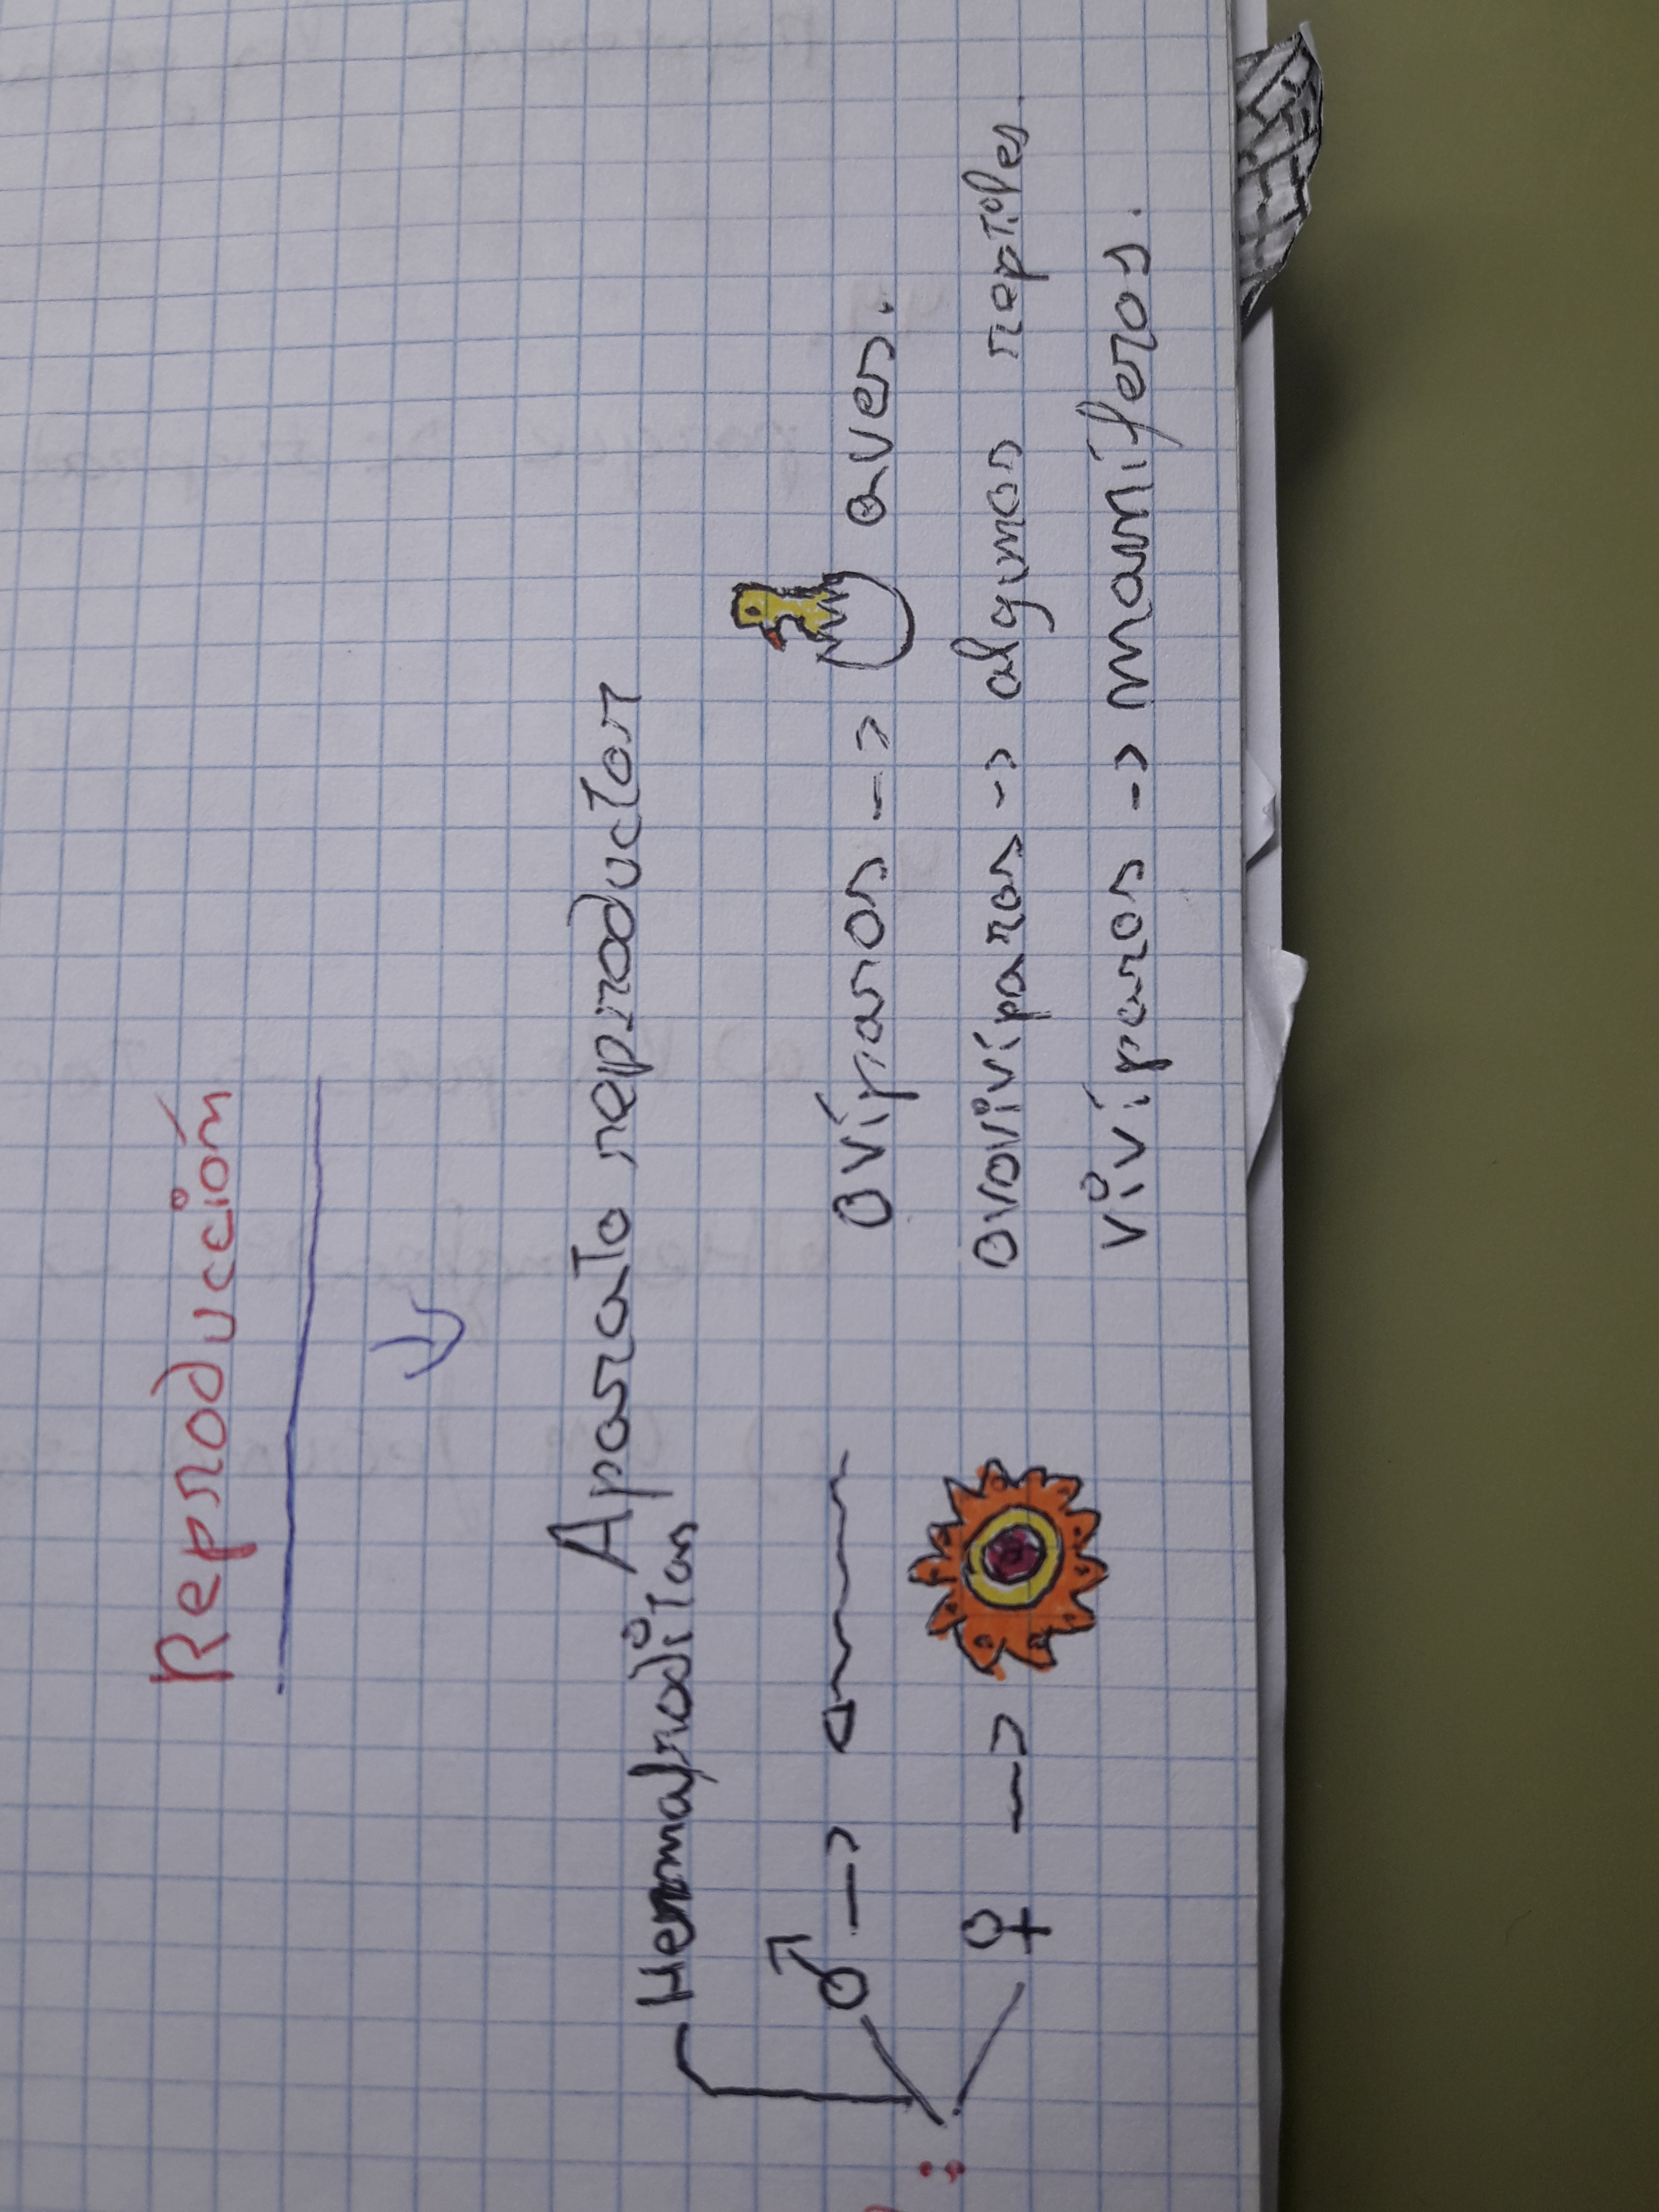 Reproducción
Aparato reproductor
Hermafroditas
♂ -->
♀ -->
Ovíparos --> aves.
Ovovivíparos -> algunos reptiles.
Vivíparos -> mamíferos.